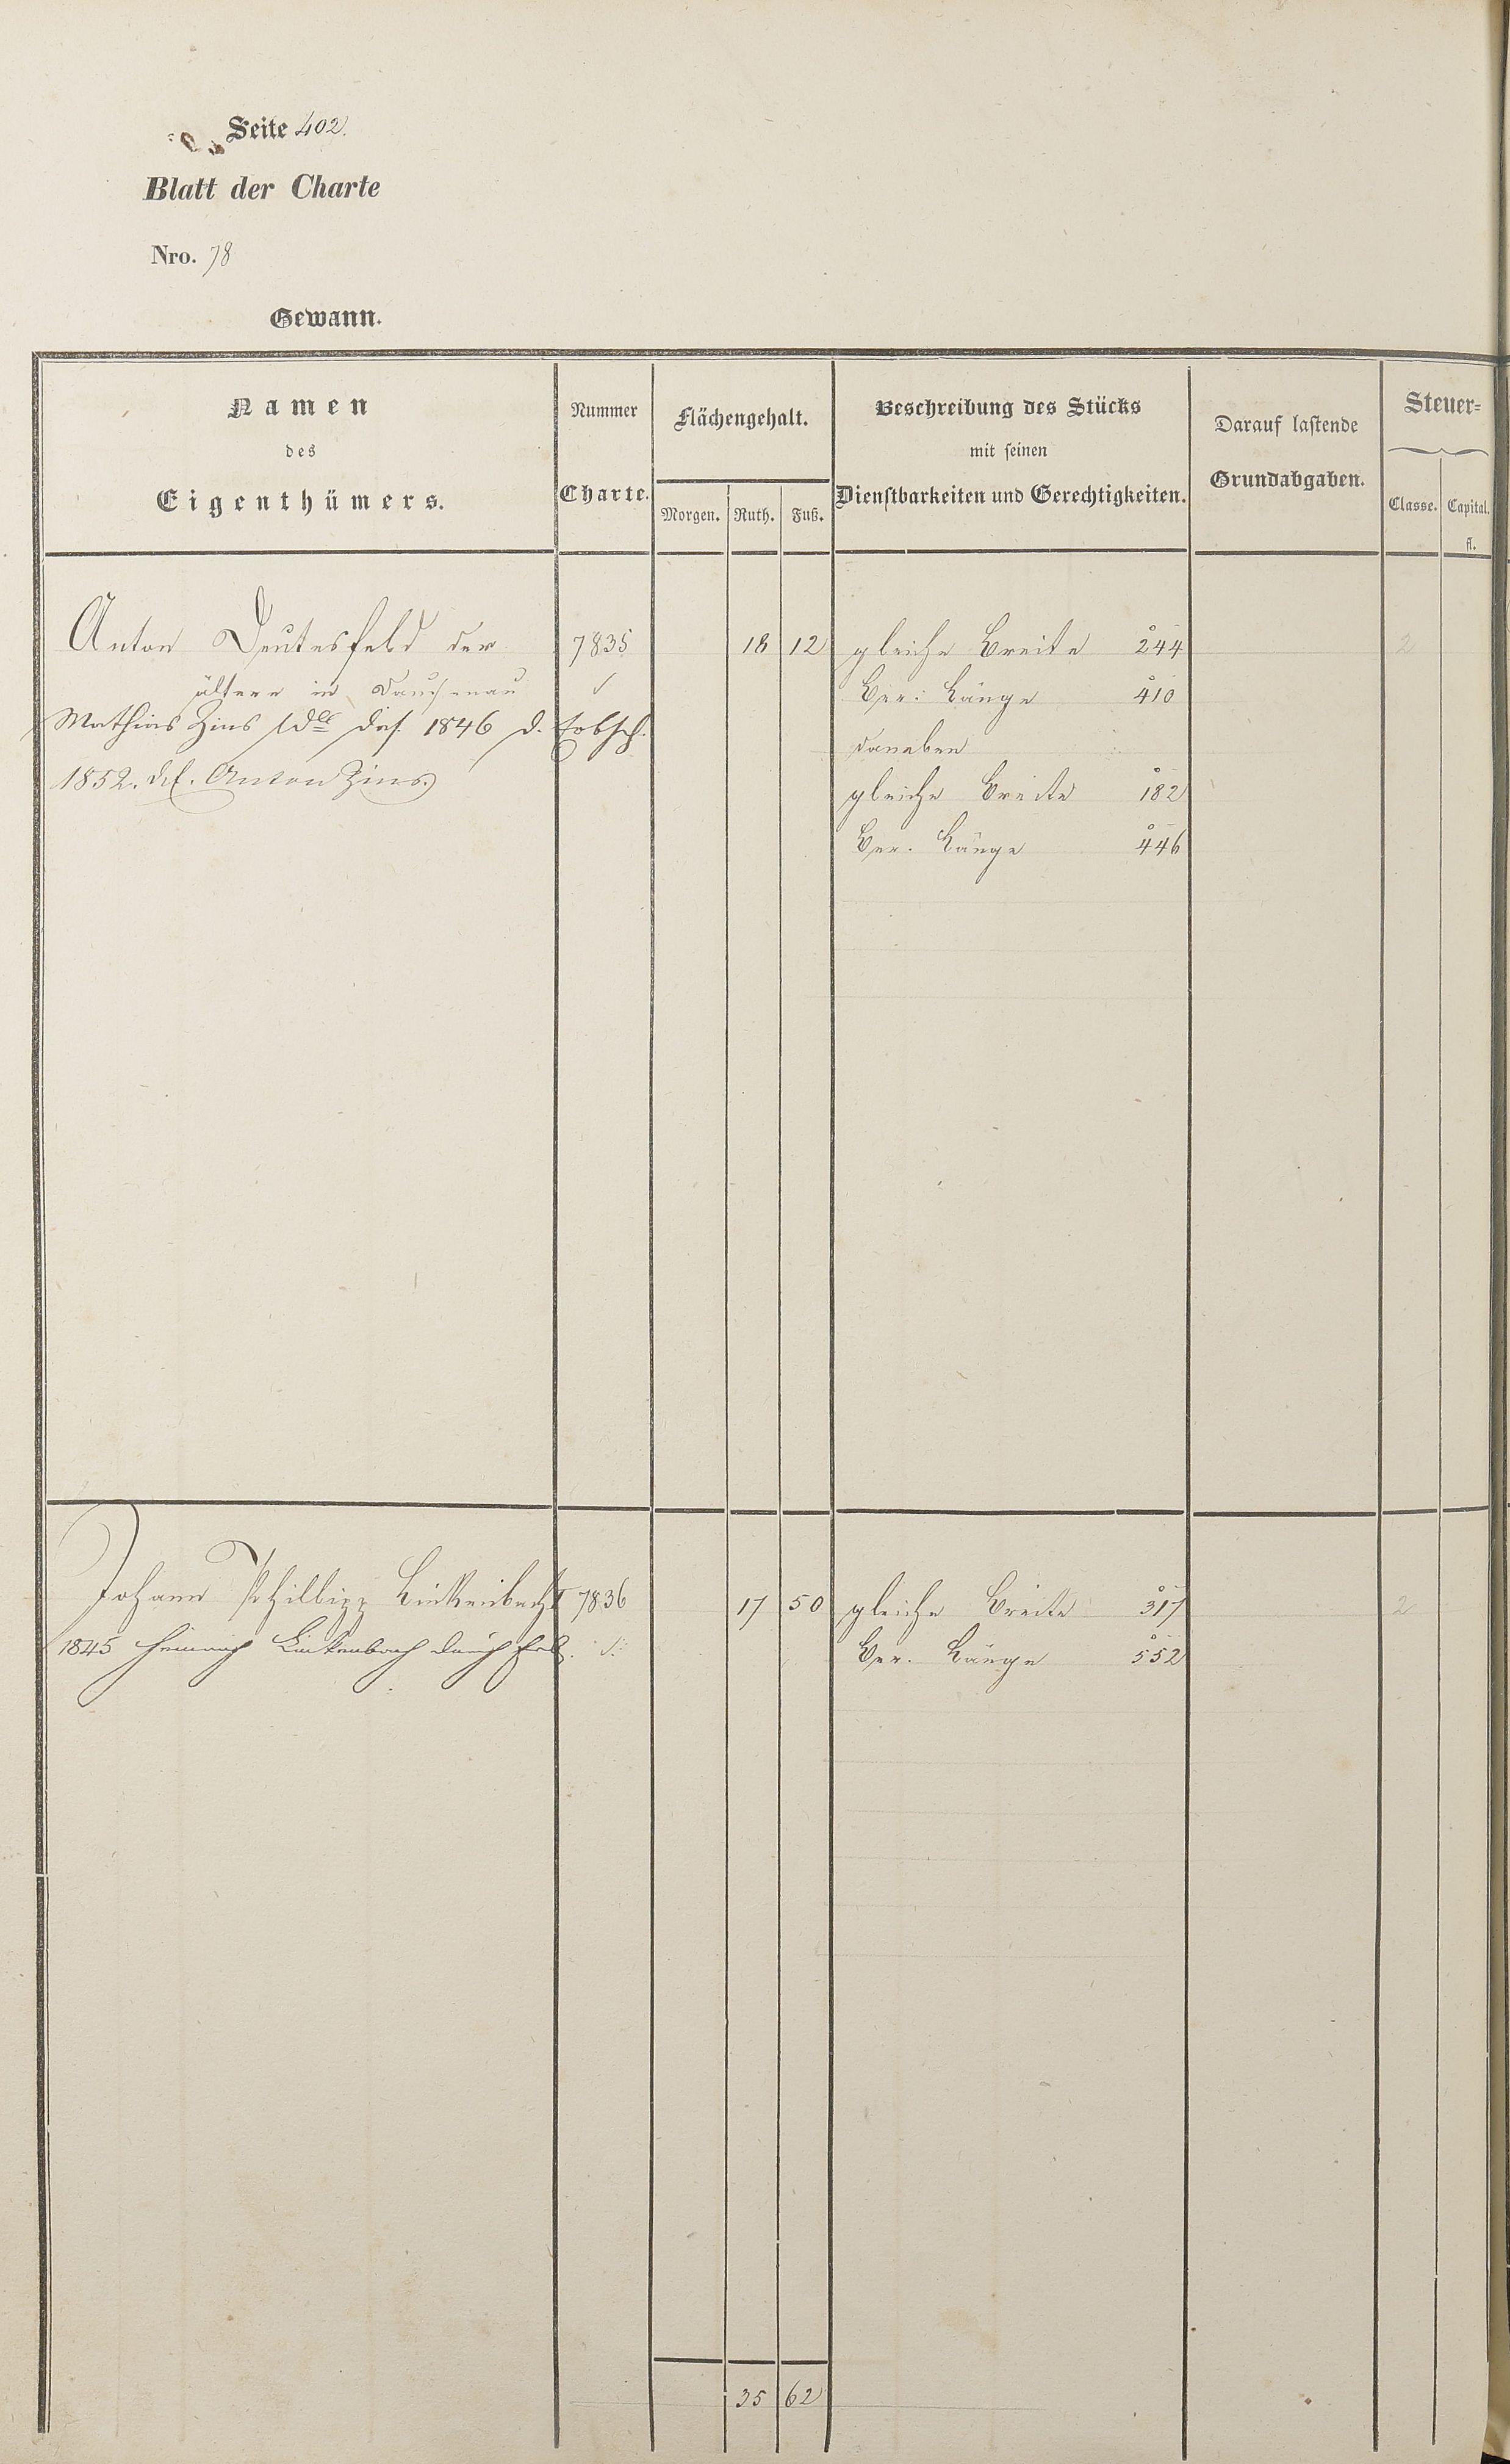 Seite 402.
Blatt der Charte
Nro. 78
Gewann.
Namen
des
Eigenthümers.
Nummer
Charte.
Flächengehalt.
Morgen. Ruth. Fuß.
Beschreibung des Stücks
mit seinen
Dienstbarkeiten und Gerechtigkeiten.
Darauf lastende
Grundabgaben.
Steuer=
Classe. Capital.
fl.
Anton Deutesfeld der 7835 18 12 gleiche Breite 244 2
ältere in Dausenau Ber: Länge 410
Mathias Zins das. 1846 d. Erbsch.
daneben
1852. Anton Zins
gleiche Breite 182
Ber. Länge 446
Johann Philipp Linkenbach 7836 17 50 gleiche Breite 317 2
1845 Heinrich Linkenbach durch Erb. Ber. Länge 552
35 62